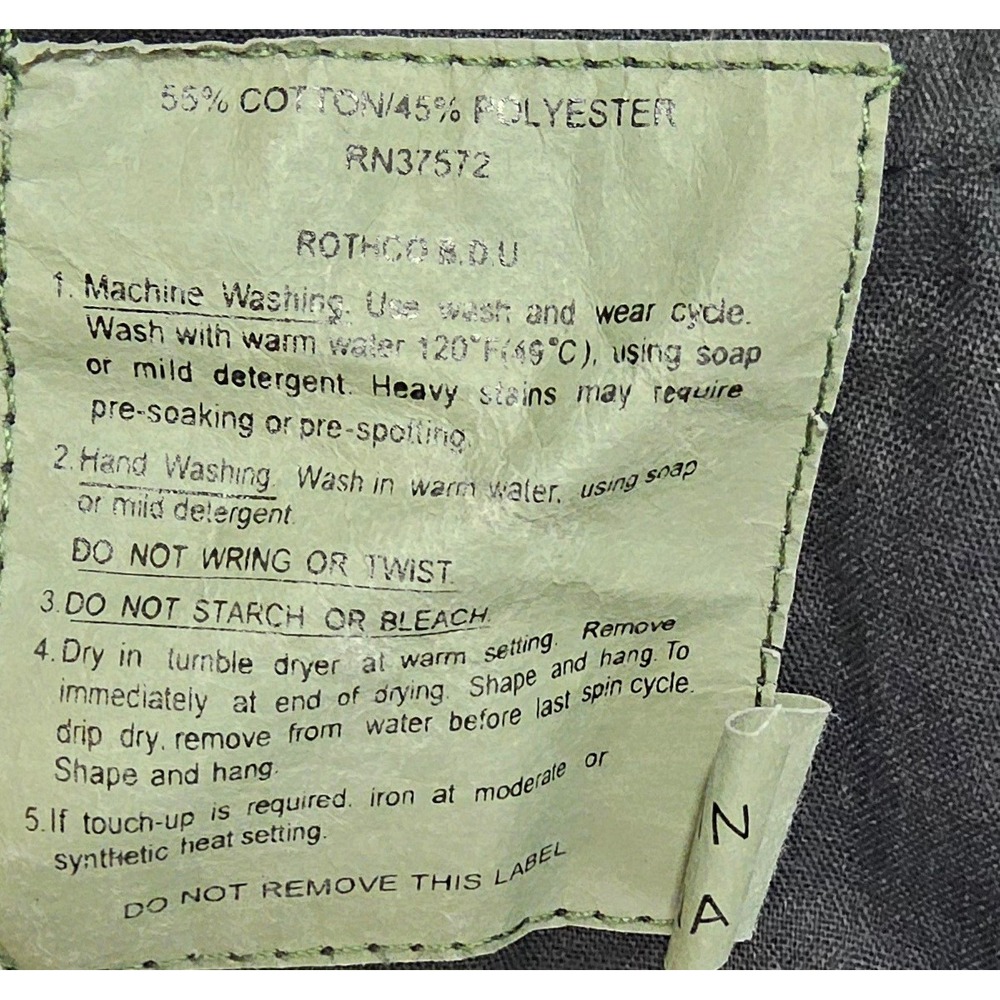 55% COTTON/45% POLYESTER
RN37572
ROTHCO B.D.U
1. Machine Washing. Use wash and wear cycle.
Wash with warm water 120°F(49°C), using soap
or mild detergent. Heavy stains may require
pre-soaking or pre-spotting.
2. Hand Washing. Wash in warm water, using soap
or mild detergent.
DO NOT WRING OR TWIST
3. DO NOT STARCH OR BLEACH.
4. Dry in tumble dryer at warm setting. Remove
immediately at end of drying. Shape and hang. To
drip dry, remove from water before last spin cycle.
Shape and hang.
5. If touch-up is required, iron at moderate or
synthetic heat setting.
DO NOT REMOVE THIS LABEL
N
A